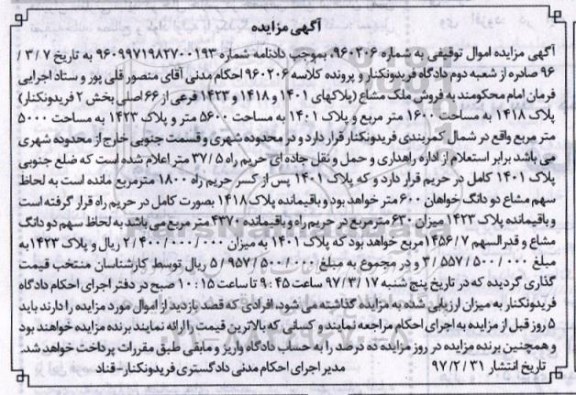 آگهی مزایده
آگهی مزایده اموال توقیفی به شماره ۹۶۰۲۰۶، بموجب دادنامه شماره ۹۶۰۹۹۷۱۹۸۲۷۰۰۱۹۳ به تاریخ ۳/۷/
۹۶ صادره از شعبه دوم دادگاه فریدونکنار و پرونده کلاسه ۹۶۰۲۰۶ احکام مدنی آقای منصور قلی پور و ستاد اجرایی
فرمان امام محکومند به فروش ملک مشاع (پلاکهای ۱۴۰۱ و ۱۴۱۸ و ۱۴۲۳ فرعی از ۶۶ اصلی بخش ۲ فریدونکنار)
پلاک ۱۴۱۸ به مساحت ۱۶۰۰ متر مربع و پلاک ۱۴۰۱ به مساحت ۵۶۰۰ متر و پلاک ۱۴۲۳ به مساحت ۵۰۰۰
متر مربع واقع در شمال کمربندی فریدونکنار قرار دارد و در محدوده شهری و قسمت جنوبی خارج از محدوده شهری
می باشد برابر استعلام از اداره راهداری و حمل و نقل جاده ای حریم راه ۳۷/۵ متر اعلام شده است که ضلع جنوبی
پلاک ۱۴۰۱ کامل در حریم قرار دارد و که پلاک ۱۴۰۱ پس از کسر حریم راه ۱۸۰۰ مترمربع مانده است به لحاظ
سهم مشاع دو دانگ خواهان ۶۰۰ متر خواهد بود و باقیمانده پلاک ۱۴۱۸ بصورت کامل در حریم راه قرار گرفته است
و باقیمانده پلاک ۱۴۲۳ میزان ۶۳۰ مترمربع در حریم راه و باقیمانده ۴۳۷۰ متر مربع می باشد به لحاظ سهم دو دانگ
مشاع و قدرالسهم ۱۴۵۶/۷ مربع خواهد بود که پلاک ۱۴۰۱ به میزان ۲/۴۰۰/۰۰۰/۰۰۰ ریال و پلاک ۱۴۲۳ به
مبلغ ۳/۵۵۷/۵۰۰/۰۰۰ و در مجموع به مبلغ ۵/۹۵۷/۵۰۰/۰۰۰ ریال توسط کارشناسان منتخب قیمت
گذاری گردیده که در تاریخ پنج شنبه ۹۷/۳/۱۷ ساعت ۹:۴۵ تا ساعت ۱۰:۱۵ صبح در دفتر اجرای احکام دادگاه
فریدونکنار به میزان ارزیابی شده به مزایده گذاشته می شود، افرادی که قصد بازدید از اموال مورد مزایده را دارند باید
۵ روز قبل از مزایده به اجرای احکام مراجعه نمایند و کسانی که بالاترین قیمت را ارائه نمایند برنده مزایده خواهند بود
و همچنین برنده مزایده در روز مزایده ده درصد را به حساب دادگاه واریز و مابقی طبق مقررات پرداخت خواهد شد.
تاریخ انتشار ۹۷/۲/۳۱ مدیر اجرای احکام مدنی دادگستری فریدونکنار - قناد